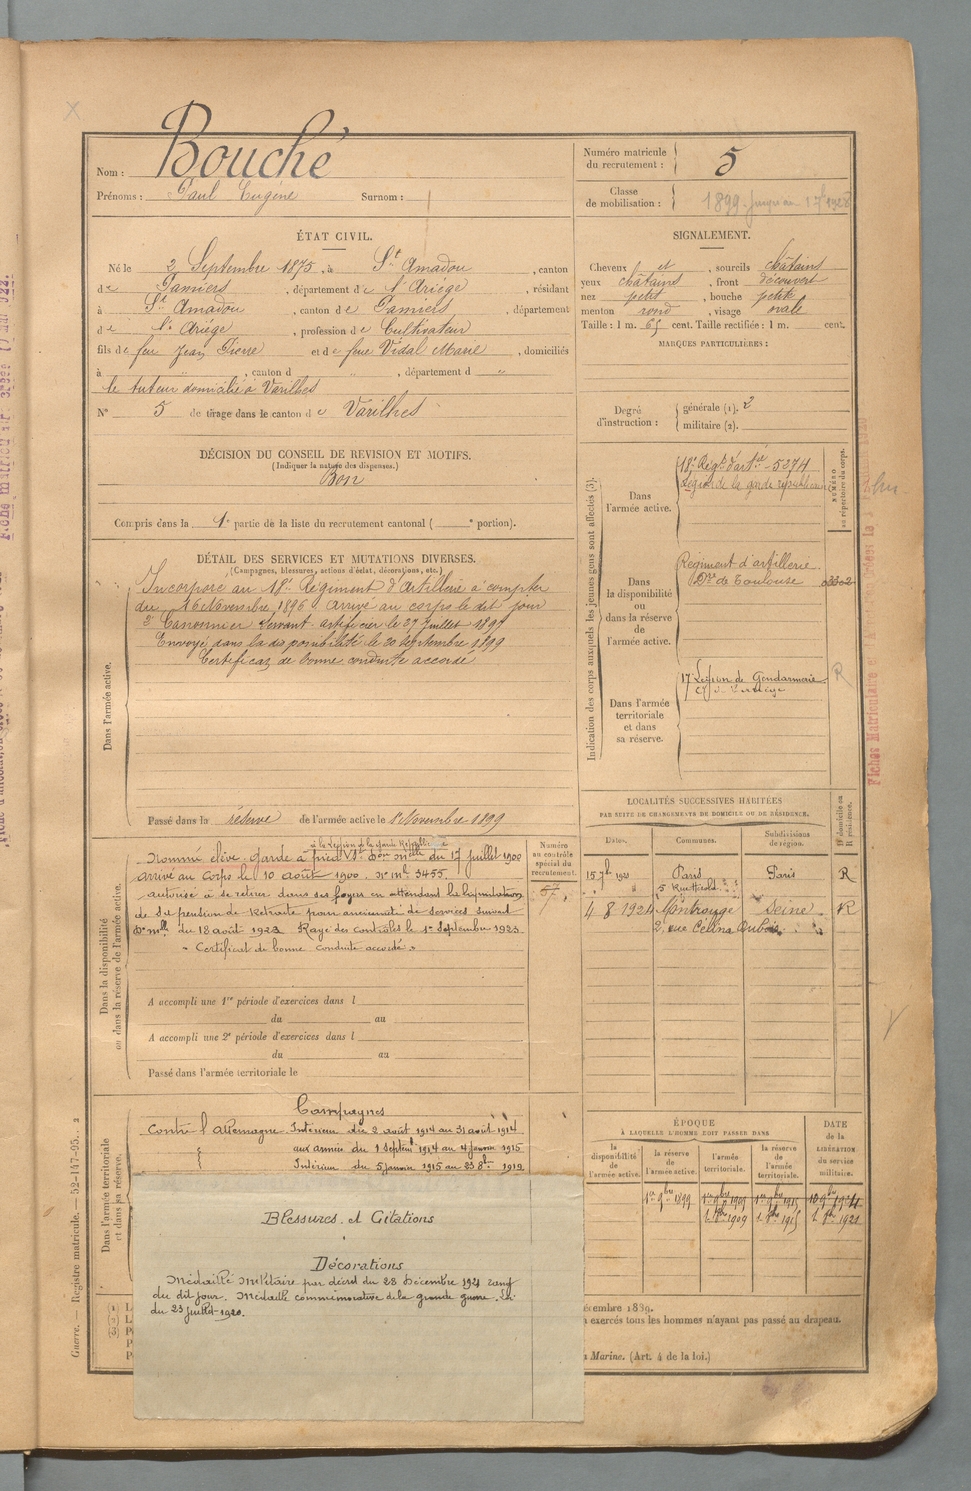 Nom : Bouché
Prénoms : Paul Eugène Surnom :
Numéro matricule du recrutement : 5
Classe de mobilisation : 1899
ÉTAT CIVIL.
Né le 2 Septembre 1875, à St Amadou, canton
de Pamiers, département de l'Ariège, résidant
à St Amadou, canton de Pamiers, département
de l'Ariège, profession de Cultivateur
fils de feu Jean Pierre et de feue Vidal Marie, domiciliés
à " , canton d " , département d "
le tuteur domicilié à Varilhes
N° 5 de tirage dans le canton de Varilhes
SIGNALEMENT.
Cheveux et , sourcils châtains
yeux châtains , front découvert
nez petit , bouche petite
menton rond , visage ovale
Taille : 1 m. 65 cent. Taille rectifiée : 1 m. cent.
MARQUES PARTICULIÈRES :
Degré d'instruction : générale (1). 2
militaire (2).
DÉCISION DU CONSEIL DE REVISION ET MOTIFS.
(Indiquer la nature des dispenses.)
Bon
Compris dans la 1e partie de la liste du recrutement cantonal ( e portion).
DÉTAIL DES SERVICES ET MUTATIONS DIVERSES.
(Campagnes, blessures, actions d'éclat, décorations, etc.)
Dans l'armée active.
Incorporé au 18e Régiment d'Artillerie à compter
du 16 Novembre 1896. arrivé au corps le dit jour
2e Canonnier Servant. artificier le 27 Juillet 1897
Envoyé dans la disponibilité le 20 Septembre 1899
Certificat de bonne conduite accordé
Passé dans la réserve de l'armée active le 1er Novembre 1899
Indication des corps auxquels les jeunes gens sont affectés (3).
NUMÉRO au répertoire du corps.
Dans l'armée active.
18e Régt d'artie - 5074
Légion de la garde républicaine
Dans la disponibilité ou dans la réserve de l'armée active.
Régiment d'artillerie
de Toulouse
Dans l'armée territoriale et dans sa réserve.
17 Légion de Gendarmerie
R
Dans la disponibilité ou dans la réserve de l'armée active.
à la Légion de la Garde Républicaine
Nommé élève-garde à pied don melle du 17 Juillet 1900
arrivé au Corps le 10 août 1900. No mle 3455.
autorisé à se retirer dans ses foyers en attendant la liquidation
de sa pension de Retraite pour ancienneté de services suivant
don melle du 18 août 1923 Rayé des contrôles le 1er Septembre 1923
" Certificat de bonne Conduite accordé "
A accompli une 1re période d'exercices dans l
du au
A accompli une 2e période d'exercices dans l
du au
Passé dans l'armée territoriale le
Numéro au contrôle spécial du recrutement.
57
LOCALITÉS SUCCESSIVES HABITÉES
PAR SUITE DE CHANGEMENTS DE DOMICILE OU DE RÉSIDENCE.
Dates. Communes. Subdivisions de région. D domicile ou R résidence.
Paris Paris R
4 8 1924 Montrouge Seine R
2, rue Célina Dubois
Dans l'armée territoriale et dans sa réserve.
Campagnes
Contre l'Allemagne. Intérieur du 2 août 1914 au 31 août 1914
aux armées du 1 Septembre 1914 au 4 Janvier 1915
Intérieur du 5 Janvier 1915 au 23 8bre 1919
Blessures et Citations
Décorations
Médaille Militaire par décret du 28 Décembre 1921 rang
du dit jour. Médaille commémorative de la grande guerre. Loi
du 23 Juillet 1920.
ÉPOQUE
À LAQUELLE L'HOMME DOIT PASSER DANS
la disponibilité de l'armée active. la réserve de l'armée active. l'armée territoriale. la réserve de l'armée territoriale.
DATE de la LIBÉRATION du service militaire.
1er 9bre 1899 1er 9bre 1909 1er 9bre 1915
écembre 1889.
n exercés tous les hommes n'ayant pas passé au drapeau.
Marine. (Art. 4 de la loi.)
Guerre. — Registre matricule. — 52-147-95.. 2